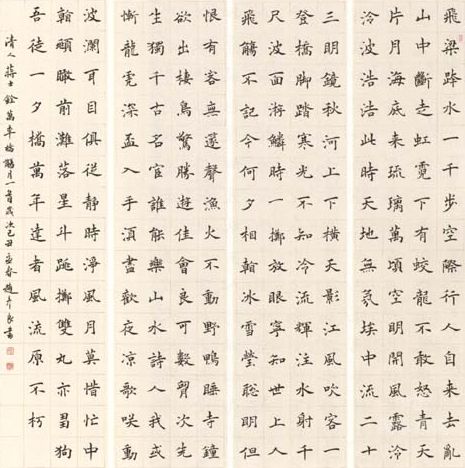 飛梁跨水一千步空際行人自來去亂
山中斷走虹霓下有蛟龍不敢怒青天
片月海底来琉璃萬頃空明開風露泠
泠波浩浩此時天地無氛埃中流二十
三明鏡秋河上下横天影江風吹客一
登橋脚踏寒光不知冷流輝注水射千
尺波面鱗時一擲放浪寧知世上人
飛觴不記今何夕相翰冰雪瑩聰明但
恨有客無聲漁火不動野鴨睡寺鐘
欲出棲鳥驚勝遊佳會良可數胷次先
生獨千古名官誰能樂山水詩人我或
慚龍深盃入手須盡歡夜涼歌咲動
波瀾耳目俱從靜時淨風月莫惜忙中
翰瞰前灘落星斗跳擲雙丸亦芻狗
吾徒一夕橋萬年達者風流原不朽
清人蔣士銓萬年橋觴月一首歲次己丑孟春趙彥良書